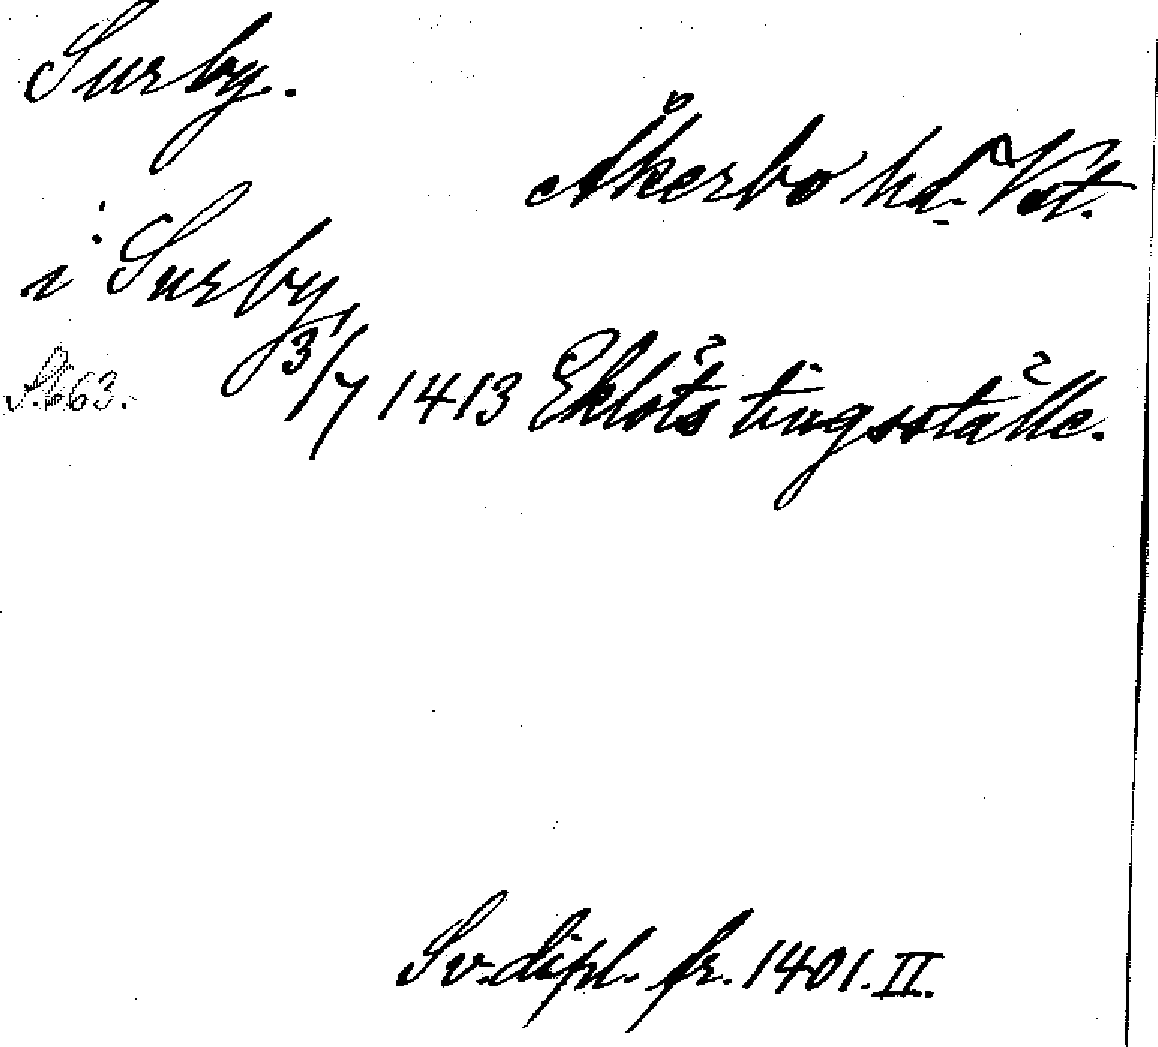 Surby.
Åkerbo hd. Vst.
i Surby
31/7 1413 Eklöts tingsställe.
S. 663.
Sv. dipl. fr. 1401. II.